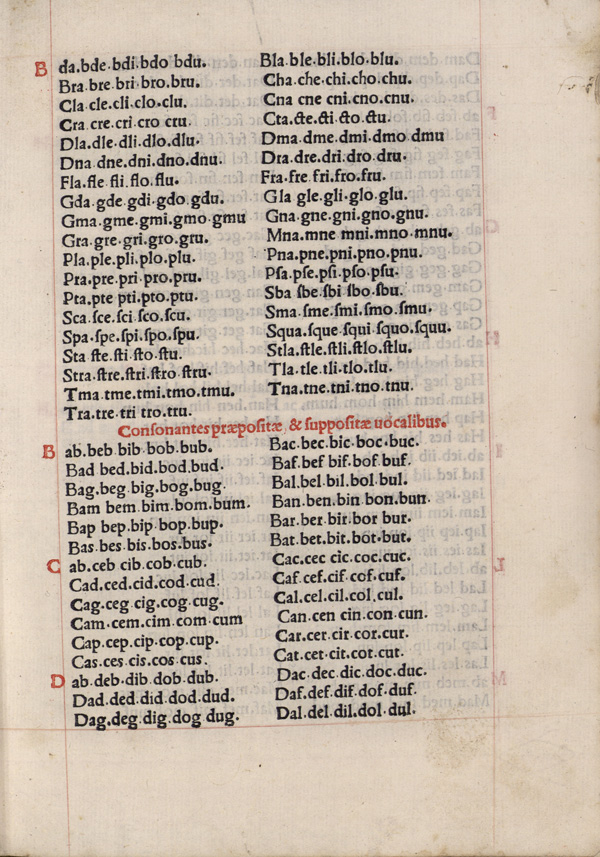 B da.bde.bdi.bdo bdu.
Bra.bre.bri.bro.bru.
Cla cle.cli.clo.clu.
Cra cre.cri cro cru.
Dla.dle.dli.dlo.dlu.
Dna dne.dni.dno.dnu.
Fla.fle fli.flo.flu.
Gda.gde gdi.gdo gdu.
Gma.gme.gmi.gmo gmu
Gra.gre.gri.gro.gru.
Pla.ple.pli.plo.plu.
Pra.pre pri pro.pru.
Pta.pte pti.pto.ptu.
Sca ſce.ſci ſco.ſcu.
Spa.ſpe.ſpi.ſpo.ſpu.
Sta ſte.ſti ſto.ſtu.
Stra.ſtre.ſtri.ſtro ſtru.
Tma tme.tmi.tmo.tmu.
Tra.tre.tri tro.tru.
Bla.ble.bli.blo.blu.
Cha.che.chi.cho.chu.
Cna cne cni.cno.cnu.
Cta.cte.cti cto.ctu.
Dma.dme.dmi.dmo dmu
Dra.dre.dri.dro.dru.
Fra.fre fri.fro.fru.
Gla gle.gli.glo glu.
Gna.gne.gni.gno.gnu.
Mna.mne mni.mno.mnu.
Pna.pne.pni.pno.pnu.
Pſa.pſe.pſi.pſo.pſu.
Sba ſbe.ſbi ſbo.ſbu.
Sma ſme.ſmi.ſmo.ſmu.
Squa.ſque ſqui ſquo.ſquu.
Stla.ſtle.ſtli.ſtlo.ſtlu.
Tla.tle.tli.tlo.tlu.
Tna.tne.tni.tno.tnu.
Conſonantes præpoſitæ, & ſuppoſitæ uocalibus.
B ab.beb bib bob.bub.
Bad bed.bid.bod.bud.
Bag.beg.big.bog.bug.
Bam bem bim.bom.bum.
Bap bep.bip.bop.bup.
Bas.bes.bis.bos.bus.
C ab.ceb cib.cob.cub.
Cad.ced.cid.cod.cud.
Cag.ceg cig.cog cug.
Cam.cem.cim.com cum
Cap.cep.cip.cop cup.
Cas.ces cis.cos cus.
D ab.deb.dib.dob.dub.
Dad.ded.did dod.dud.
Dag.deg dig.dog dug.
Bac.bec.bic.boc.buc.
Baf.bef bif.bof buf.
Bal.bel.bil.bol bul.
Ban.ben.bin bon.bun.
Bar.ber bir.bor bur.
Bat.bet.bit.bot.but.
Cac.cec cic.coc.cuc.
Caf.cef.cif cof.cuf.
Cal.cel.cil.col.cul.
Can.cen cin.con.cun.
Car.cer.cir.cor.cur.
Cat.cet.cit.cot.cut.
Dac.dec dic.doc.duc.
Daf.def.dif.dof.duf.
Dal.del.dil.dol.dul.